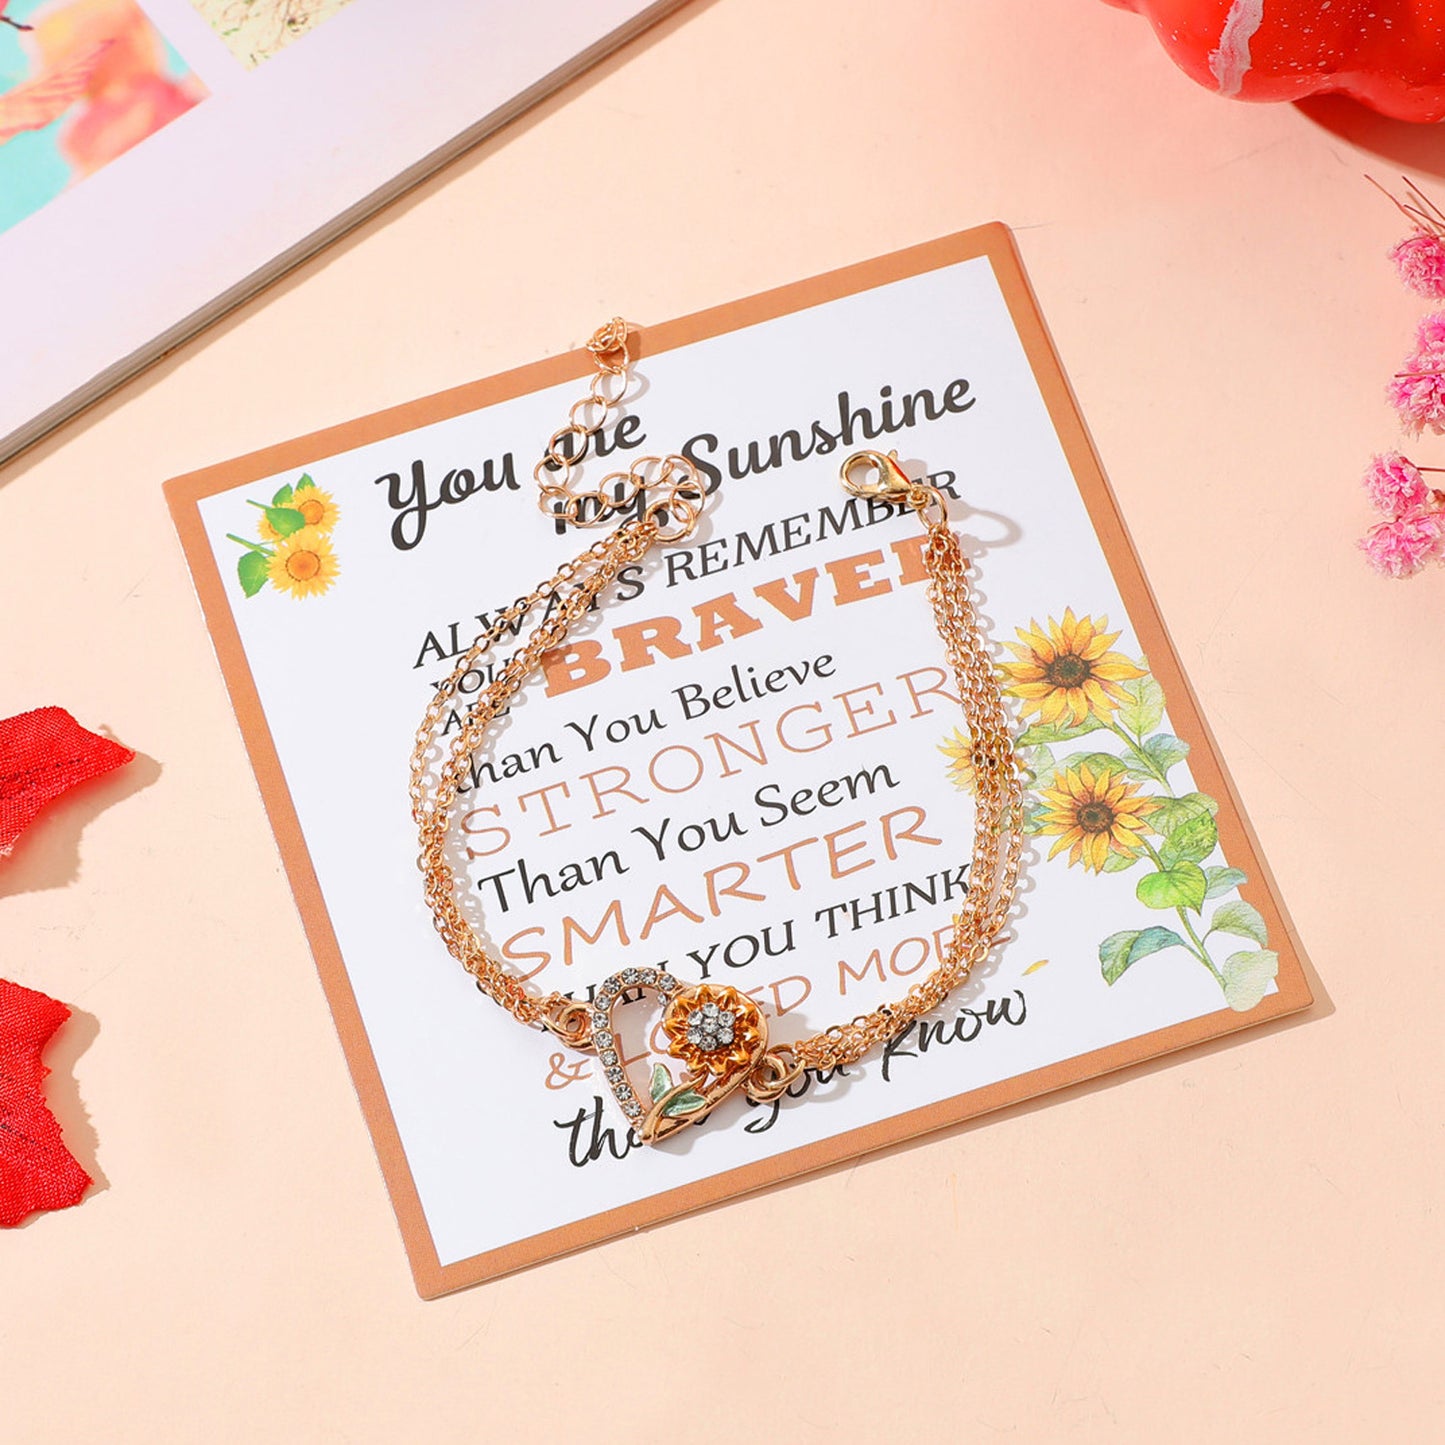 You are
my Sunshine
ALWAYS REMEMBER
YOU
ARE
BRAVER
than You Believe
STRONGER
Than You Seem
SMARTER
THAN YOU THINK
& LOVED MORE
than you know